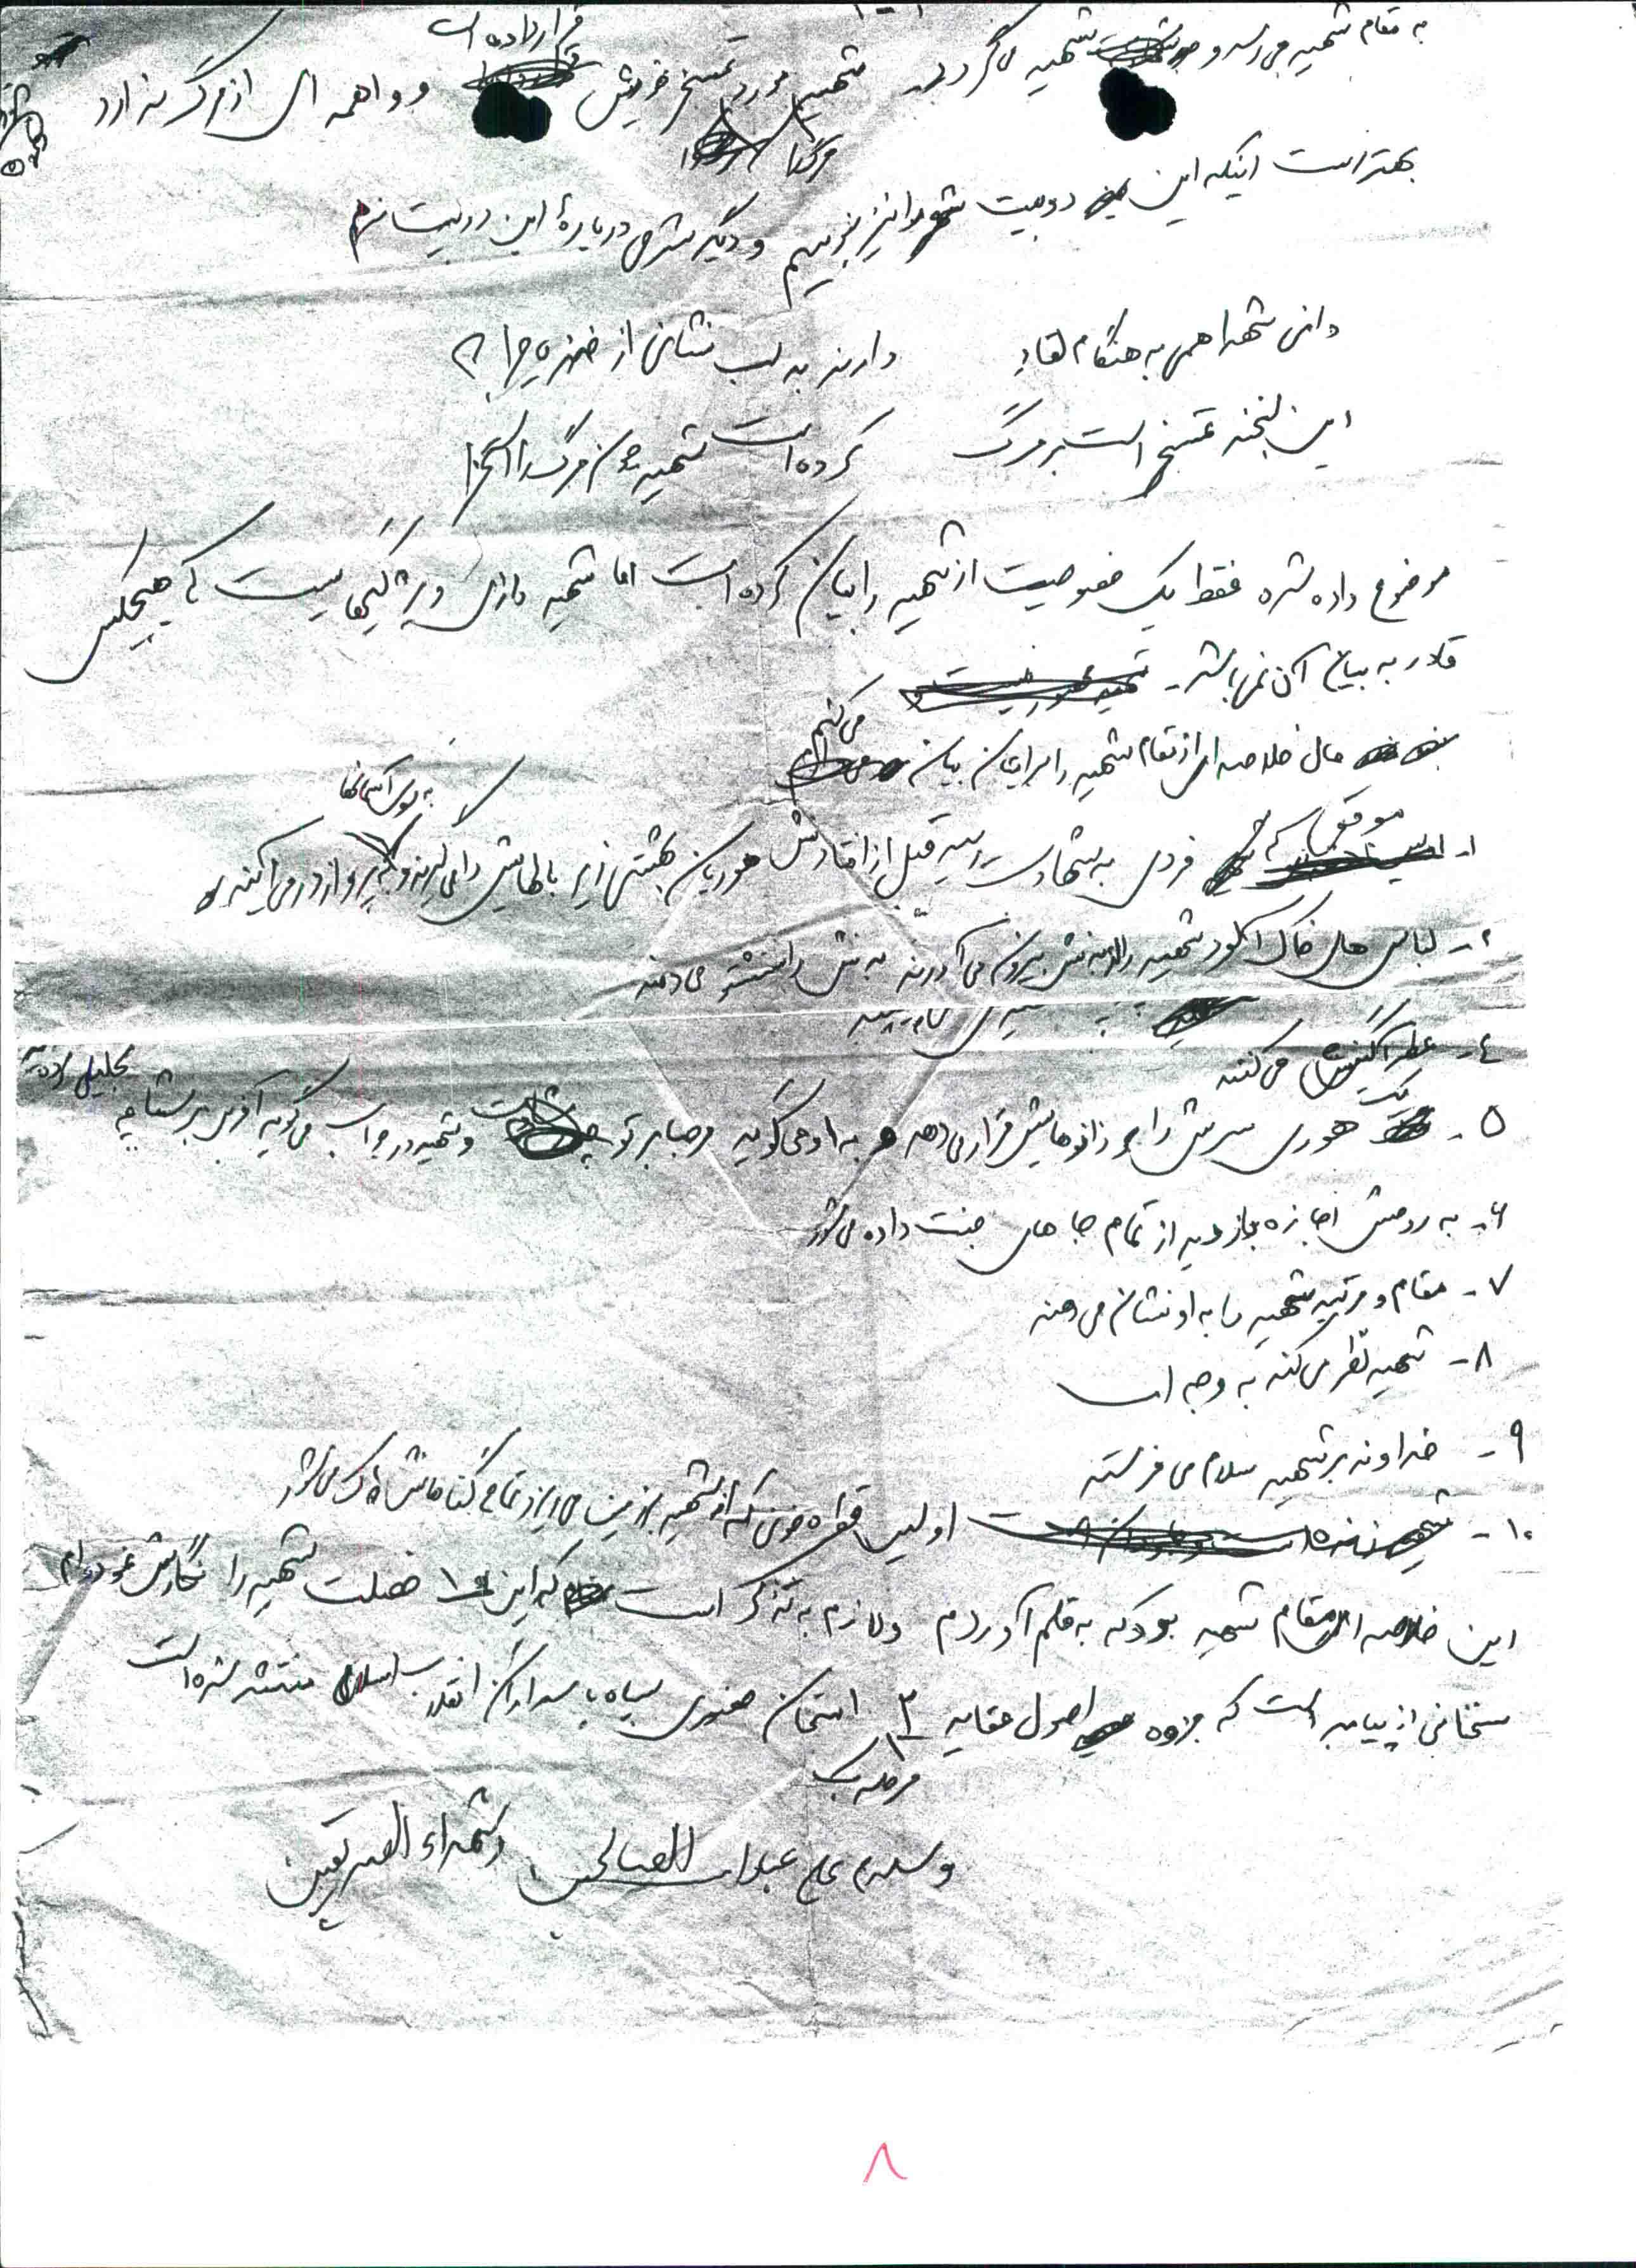 قرار داده است
به مقام شهید می‌رسد و شهید می‌گردد. شهید مورد تمسخر خویش و واهمه ای از مرگ ندارد
مرگ را
بهتر است اینکه این دو بیت شعر را نیز بنویسیم و دیگر شرحی درباره این دو بیت ندهم
دانی شهدا همی به هنگام لقاء دارند به لب نشانی از خنده چرا ؟
این لبخند تمسخر است بر مرگ کرده است شهید چون مرگ را استهزا
موضوع داده شده فقط یک خصوصیت از شهید را بیان کرده است اما شهید دارای ویژگیهاییست که هیچکس
قادر به بیان آن نمی‌باشد -
حال خلاصه ای از مقام شهید را برایتان بیان می‌کنم
به سوی آسمانها
۱- موقعی که فردی به شهادت رسید قبل از افتادنش حوریان بهشتی زیر بالهایش را می‌گیرند و به پرواز در می‌آیند
۲- لباس های خاک آلود شهید را از بدنش بیرون می‌آورند بدنش را شستشو می‌دهند
۴- عطرآگینش می‌کنند
۵- یک حوری سرش را بر زانوهایش قرار می‌دهد به او می‌گوید مرحبا بر تو و شهید در جواب می‌گوید آفرین بر شما چه
تجلیل
۶- به روحش اجازه بازدید از تمام جا های جنت داده می‌شود
۷- مقام و مرتبه شهید را به او نشان می‌دهند
۸- شهید نظر می‌کند به وجه الله
۹- خداوند بر شهید سلام می‌فرستد
۱۰- اولین قطره خونی که از شهید بر زمین می‌ریزد تمامی گناهانش پاک می‌شود
این خلاصه ای از مقام شهید بود که به قلم آوردم ولازم به تذکر است که این ۱۰ خصلت شهید را نگارش نموده‌ام
سخنانی از پیامبر است که جزوه اصول عقاید ۳ امتحان حضوری سپاه پاسداران انقلاب اسلامی منتشر شده است
مرحله یک
وسلام علی عباد الله الصالحین و شهداء الصدیقین
۸